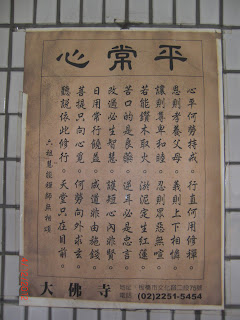 平常心
心平何勞持戒　行直何用修禪
恩則孝養父母　義則上下相憐
讓則尊卑和睦　忍則眾惡無喧
若能鑽木取火　淤泥定生紅蓮
苦口的是良藥　逆耳必是忠言
改過必生智慧　護短心內非賢
日用常行饒益　成道非由施錢
菩提只向心覓　何勞向外求玄
聽說依此修行　天堂只在目前
六祖慧能禪師無相頌
大佛寺
地址：板橋市文化路二段
電話：(02)2251-5454